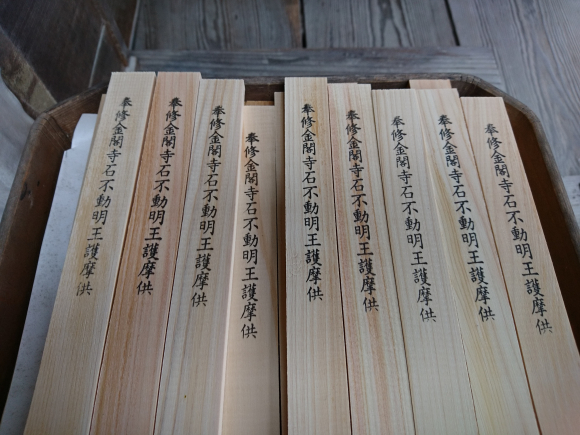 奉修金閣寺石不動明王護摩供
奉修金閣寺石不動明王護摩供
奉修金閣寺石不動明王護摩供
奉修金閣寺石不動明王護摩供
奉修金閣寺石不動明王護摩供
奉修金閣寺石不動明王護摩供
奉修金閣寺石不動明王護摩供
奉修金閣寺石不動明王護摩供
奉修金閣寺石不動明王護摩供